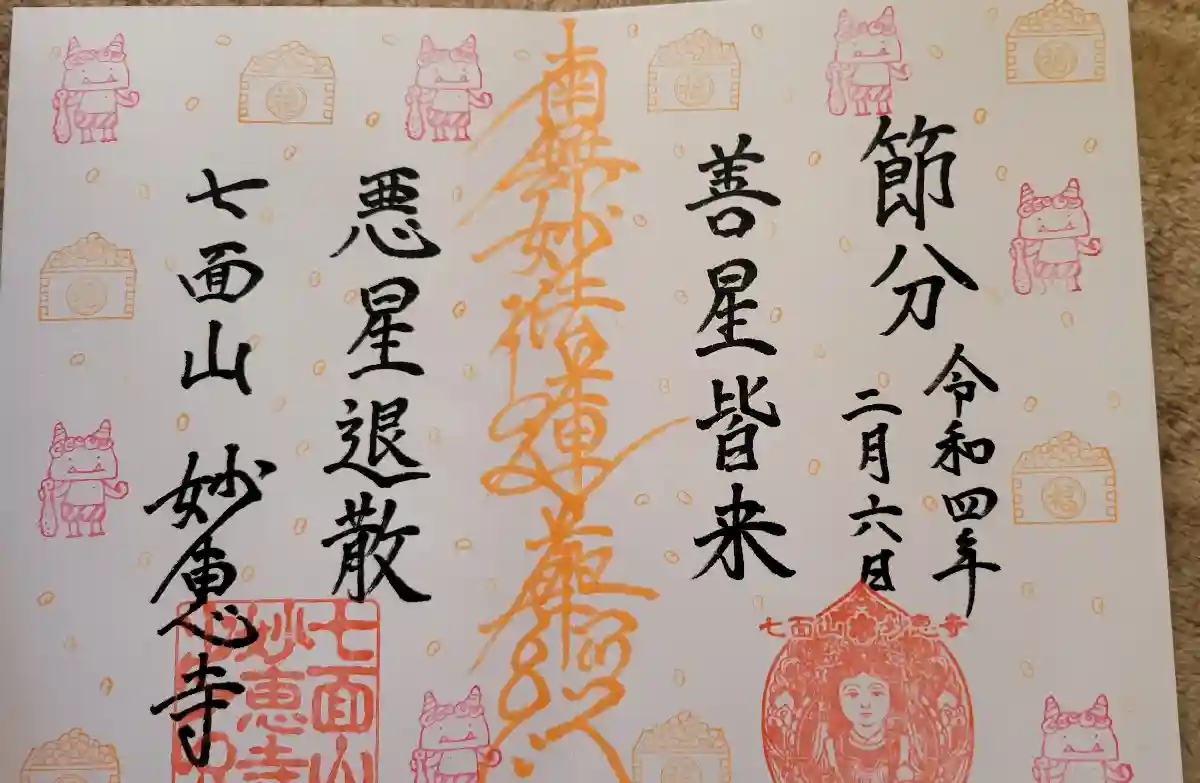 節分
令和四年
二月六日
善星皆来
南無妙法蓮華経
悪星退散
七面山 妙恵寺
七面山妙恵寺
七面山
妙恵寺
福
福
福
福
福